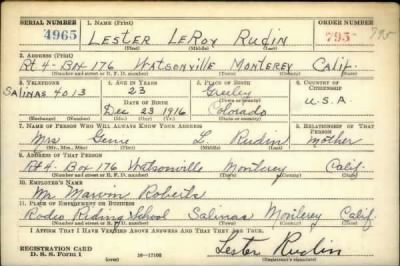 SERIAL NUMBER 1. NAME (Print) ORDER NUMBER
4965 LESTER LEROY RUDIN 795 795
(First) (Middle) (Last)
2. ADDRESS (Print)
Rt 4 - BOX 176 WATSONVILLE MONTEREY CALIF.
(Number and street or R. F. D. number) (Town) (County) (State)
3. TELEPHONE 4. AGE IN YEARS 5. PLACE OF BIRTH 6. COUNTRY OF CITIZENSHIP
SALINAS 4013 23 Greeley
(Town or county)
DATE OF BIRTH U.S.A
DEC 23 1916 Colorado
(Exchange) (Number) (Mo.) (Day) (Yr.) (State or country)
7. NAME OF PERSON WHO WILL ALWAYS KNOW YOUR ADDRESS 8. RELATIONSHIP OF THAT PERSON
Mrs L. Rudin mother
(Mr., Mrs., Miss) (First) (Middle) (Last)
9. ADDRESS OF THAT PERSON
Rt 4. Box 176 Watsonville Monterey Calif.
(Number and street or R. F. D. number) (Town) (County) (State)
10. EMPLOYER'S NAME
Mr. Marvin Roberts
11. PLACE OF EMPLOYMENT OR BUSINESS
Rodeo Riding School Salinas Monterey Calif
(Number and street or R. F. D. number) (Town) (County) (State)
I AFFIRM THAT I HAVE VERIFIED ABOVE ANSWERS AND THAT THEY ARE TRUE.
REGISTRATION CARD
D. S. S. Form 1 (over) 16-17105 Lester Rudin
(Registrant's signature)